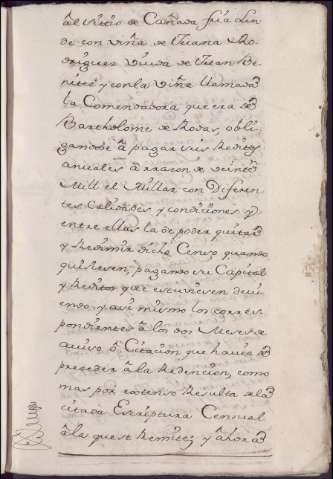 al sitio de Cañada fria lin
de con viña de Juana Ro
driguez viuda de Juan Be
nitez y con la viña llamada
la Comendadora que era de
Bartholome de Rodas, obli
gandose a pagar sus Reditos
anuales a rrazon de veinte
Mill el Millar con diferen
tes Calidades y condiciones y
entre ellas la de poder quitar
y Redimir dicho Censo quando
quisiesen, pagando su Capital
y Reditos que estuviesen devi
endo y asi mismo los corres
pondientes a los dos Meses de
aviso o Citacion que havia de
preceder a la Redencion, como
mas por extenso Resulta de la
citada Escriptura Censual
a la que se Remite; y ahora